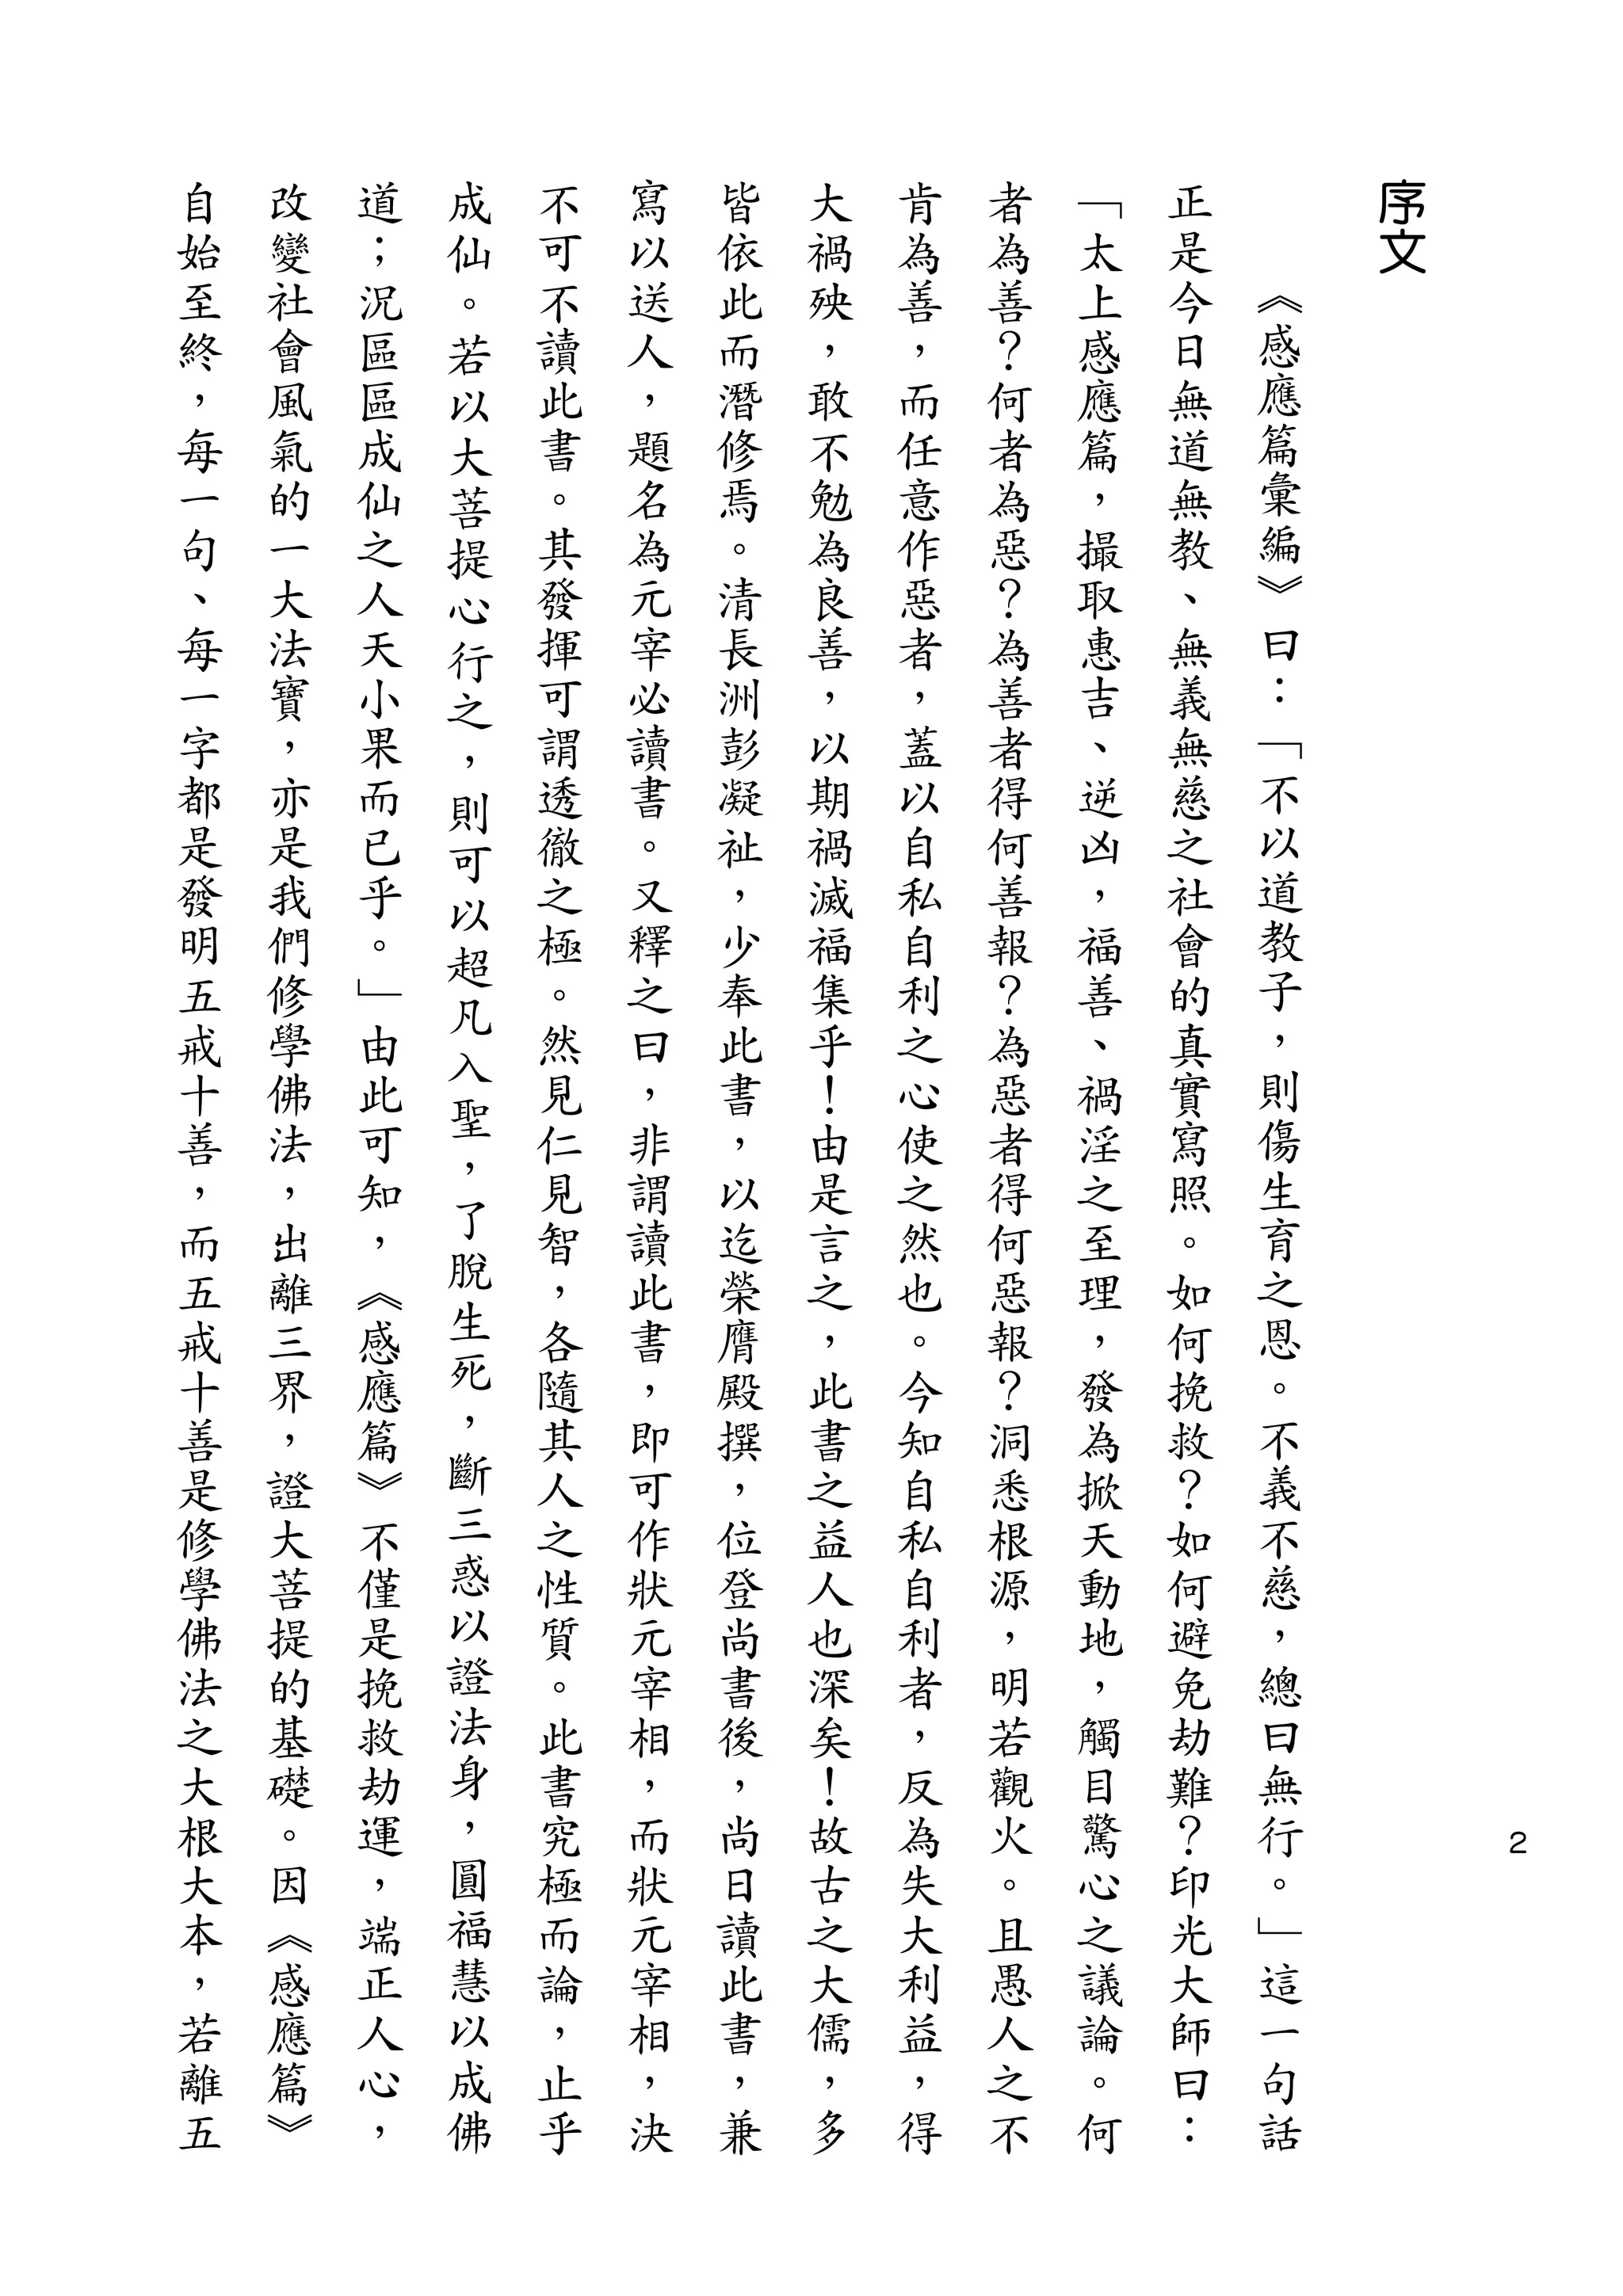 序文
《感應篇彙編》曰：「不以道教子，則傷生育之恩。不義不慈，總曰無行。」這一句話
正是今日無道無教、無義無慈之社會的真實寫照。如何挽救？如何避免劫難？印光大師曰：
「太上感應篇，撮取惠吉、逆凶，福善、禍淫之至理，發為掀天動地，觸目驚心之議論。何
者為善？何者為惡？為善者得何善報？為惡者得何惡報？洞悉根源，明若觀火。且愚人之不
肯為善，而任意作惡者，蓋以自私自利之心使之然也。今知自私自利者，反為失大利益，得
大禍殃，敢不勉為良善，以期禍滅福集乎！由是言之，此書之益人也深矣！故古之大儒，多
皆依此而潛修焉。清長洲彭凝祉，少奉此書，以迄榮膺殿撰，位登尚書後，尚日讀此書，兼
寫以送人，題名為元宰必讀書。又釋之曰，非謂讀此書，即可作狀元宰相，而狀元宰相，決
不可不讀此書。其發揮可謂透徹之極。然見仁見智，各隨其人之性質。此書究極而論，止乎
成仙。若以大菩提心行之，則可以超凡入聖，了脫生死，斷三惑以證法身，圓福慧以成佛
道；況區區成仙之人天小果而已乎。」由此可知，《感應篇》不僅是挽救劫運，端正人心，
改變社會風氣的一大法寶，亦是我們修學佛法，出離三界，證大菩提的基礎。因《感應篇》
自始至終，每一句、每一字都是發明五戒十善，而五戒十善是修學佛法之大根大本，若離五
2